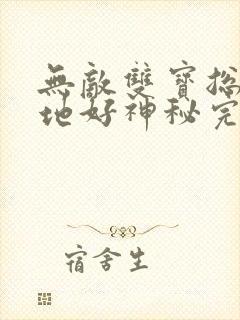 無敵雙寶總
地好神秘完
宿舍生